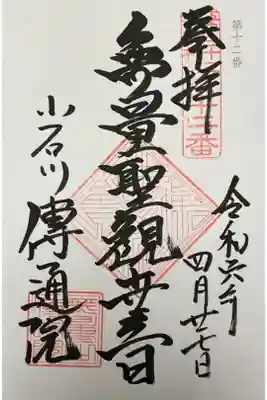 第十二番
奉拝
令和六年
四月廿七日
無量聖観世音
小石川傳通院